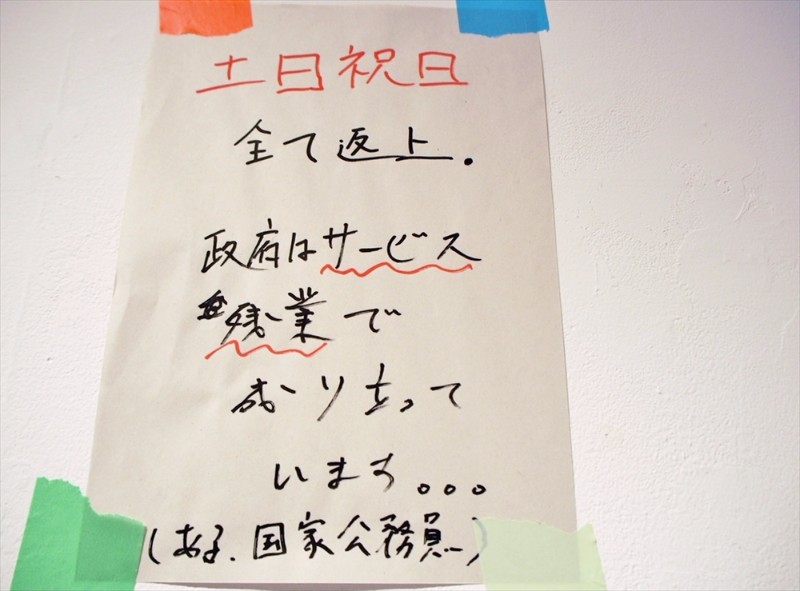 土日祝日
全て返上.
政府はサービス
残業で
成り立って
います。。。
(ある、国家公務員)